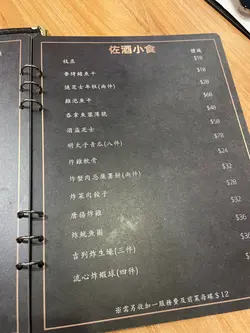 佐酒小食 價錢
枝豆 $18
香烤鱈魚干 $18
芝士年糕(兩件) $28
雞泡魚干 $68
吞拿魚薯薄脆 $48
酒盜芝士 $58
明太子青瓜(八件) $78
炸雞軟骨 $24
炸蟹肉忌廉薯餅(兩件) $32
炸菜肉餃子 $28
唐揚炸雞 $32
炸魷魚圈 $36
吉列炸生蠔(三件) $36
流心炸蝦球(四件) $36
※需另收加一服務費及前菜每碟$12